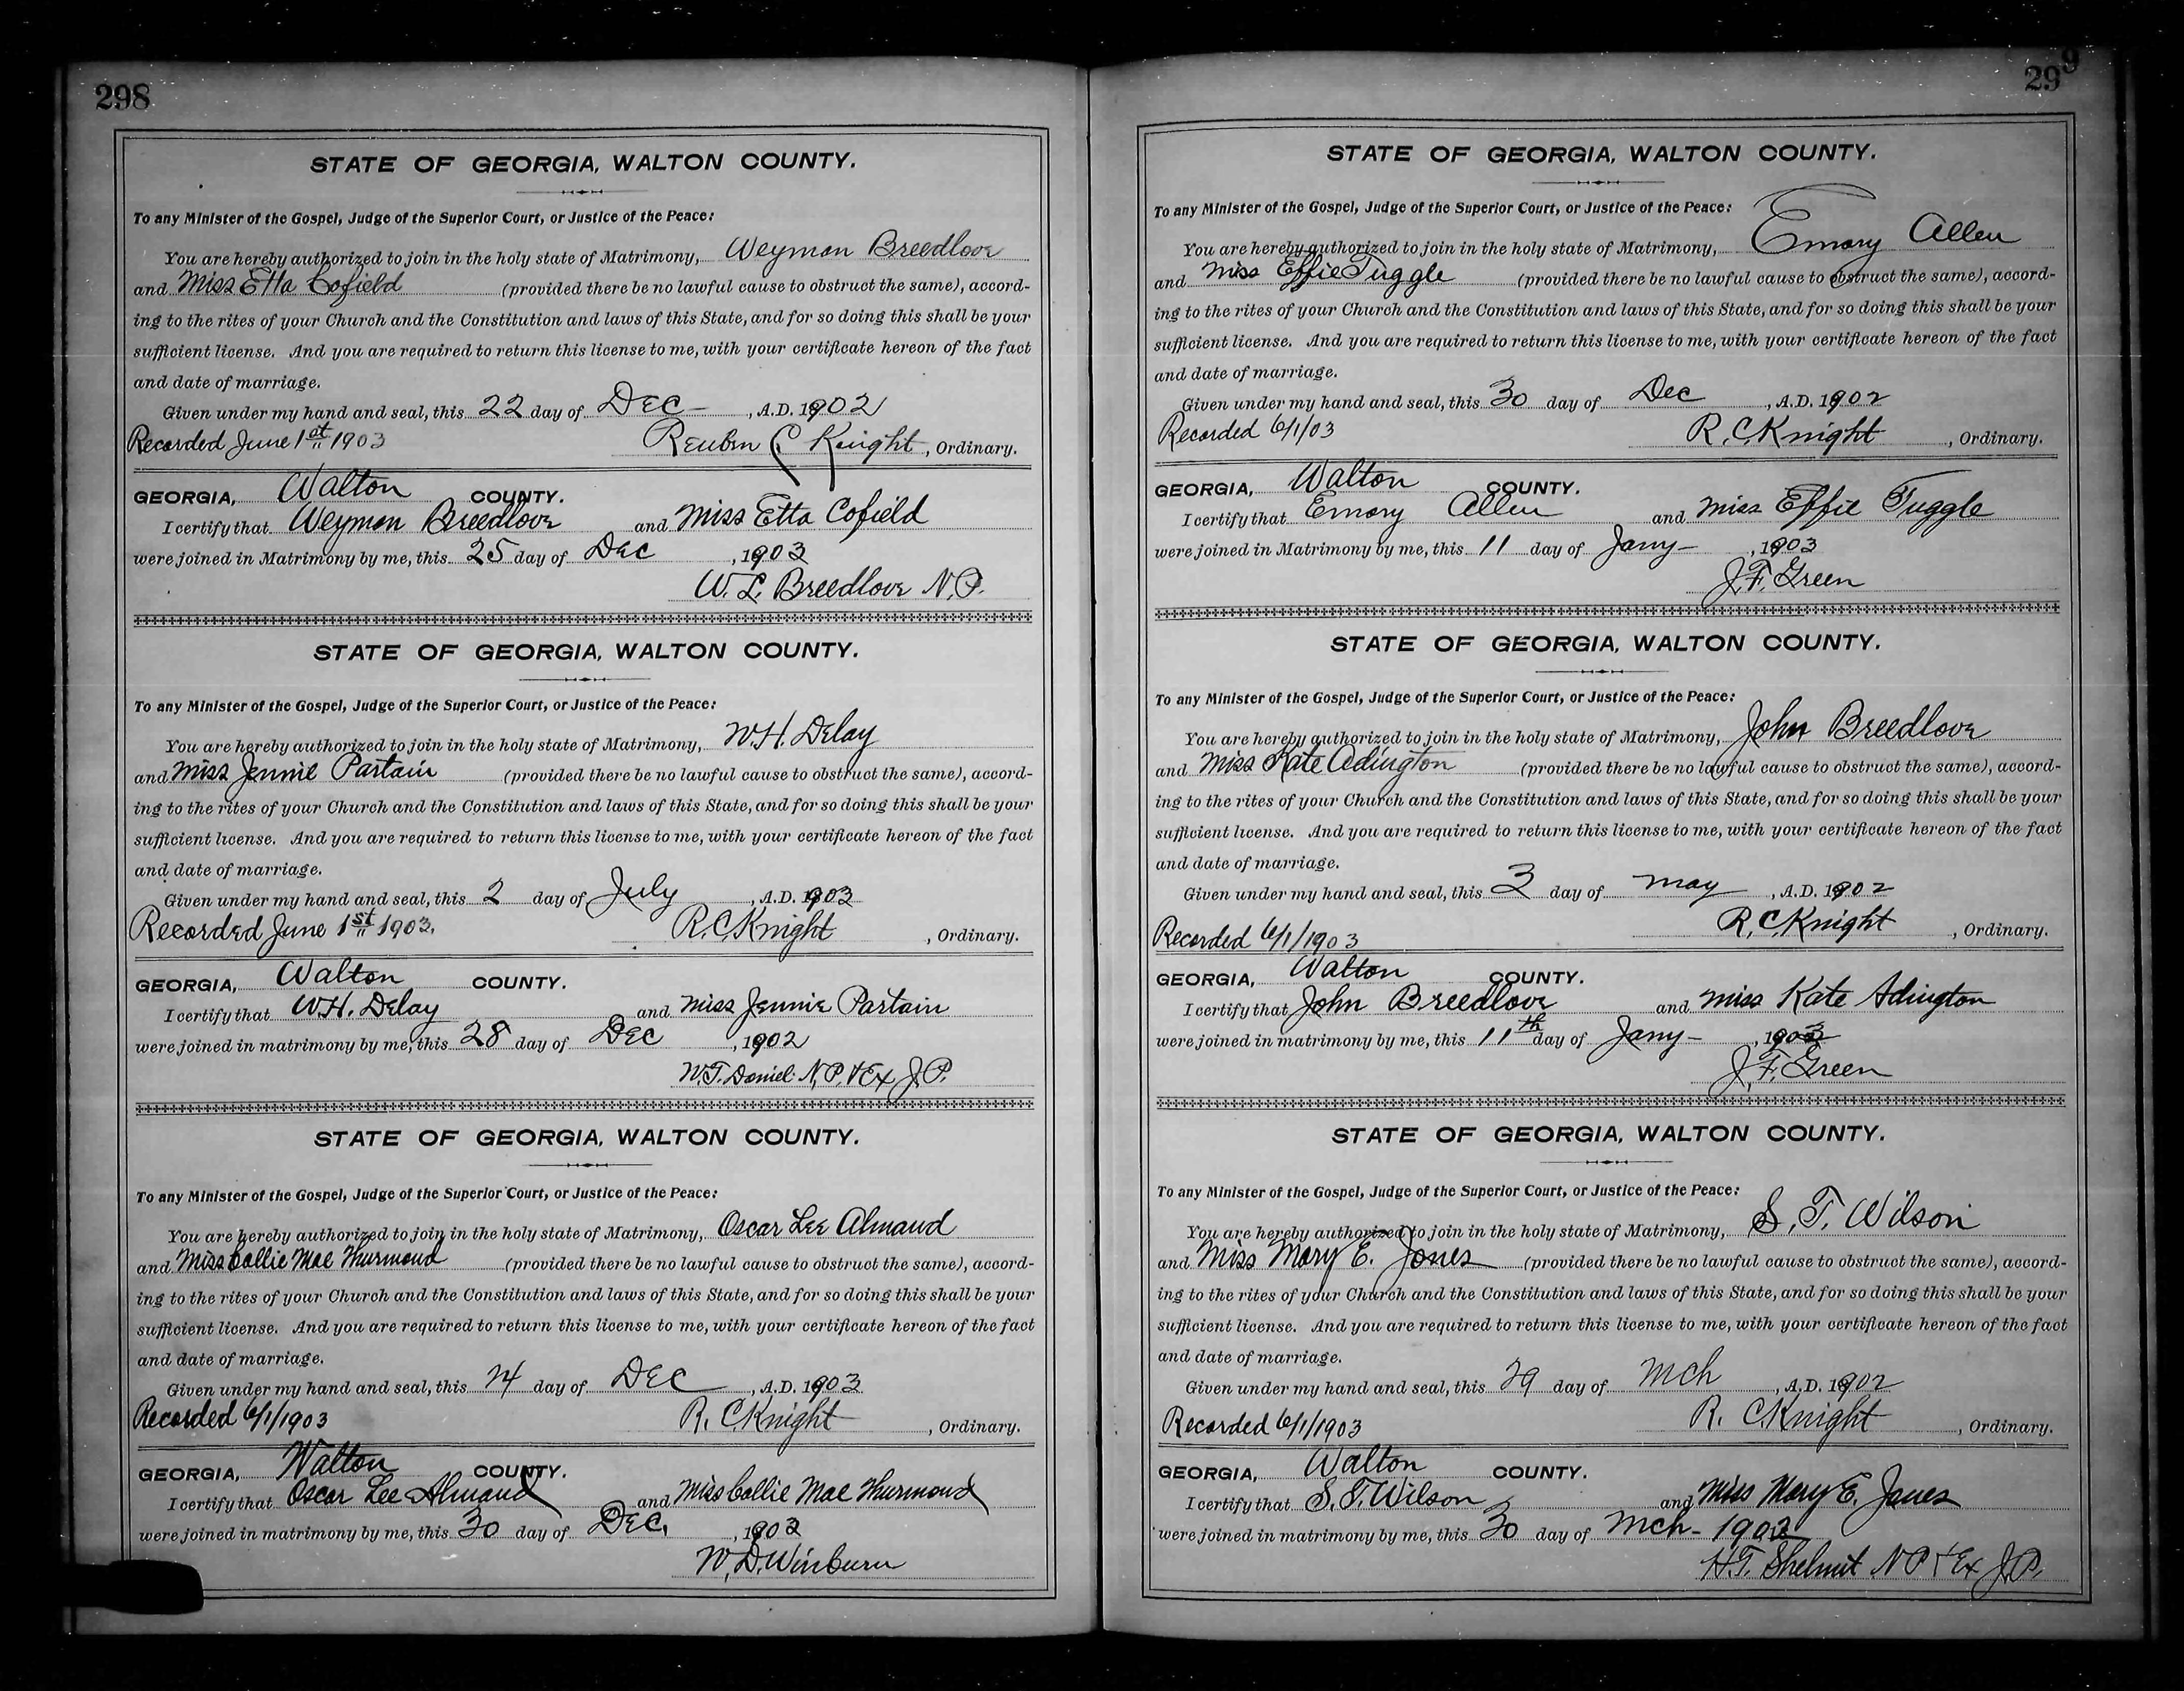 298
STATE OF GEORGIA, WALTON COUNTY.
To any Minister of the Gospel, Judge of the Superior Court, or Justice of the Peace:
You are hereby authorized to join in the holy state of Matrimony, Weymon Breedlove
and Miss Etta Cofield (provided there be no lawful cause to obstruct the same), accord-
ing to the rites of your Church and the Constitution and laws of this State, and for so doing this shall be your
sufficient license. And you are required to return this license to me, with your certificate hereon of the fact
and date of marriage.
Given under my hand and seal, this 22 day of Dec- , A.D. 1902
Recorded June 1st 1903 Reuben C. Knight, Ordinary.
GEORGIA, Walton COUNTY.
I certify that Weymon Breedlove and Miss Etta Cofield
were joined in Matrimony by me, this 25 day of Dec , 1903
W. L. Breedlove N.P.
STATE OF GEORGIA, WALTON COUNTY.
To any Minister of the Gospel, Judge of the Superior Court, or Justice of the Peace:
You are hereby authorized to join in the holy state of Matrimony, W.H. Delay
and Miss Jennie Partain (provided there be no lawful cause to obstruct the same), accord-
ing to the rites of your Church and the Constitution and laws of this State, and for so doing this shall be your
sufficient license. And you are required to return this license to me, with your certificate hereon of the fact
and date of marriage.
Given under my hand and seal, this 2 day of July , A.D. 1903
Recorded June 1st 1903. R.C. Knight , Ordinary.
GEORGIA, Walton COUNTY.
I certify that W.H. Delay and Miss Jennie Partain
were joined in matrimony by me, this 28 day of Dec , 1902
W.T. Daniel N.P. & Ex J.P.
STATE OF GEORGIA, WALTON COUNTY.
To any Minister of the Gospel, Judge of the Superior Court, or Justice of the Peace:
You are hereby authorized to join in the holy state of Matrimony, Oscar Lee Almand
and Miss Collie Mae Thurmond (provided there be no lawful cause to obstruct the same), accord-
ing to the rites of your Church and the Constitution and laws of this State, and for so doing this shall be your
sufficient license. And you are required to return this license to me, with your certificate hereon of the fact
and date of marriage.
Given under my hand and seal, this 24 day of Dec , A.D. 1903
Recorded 6/1/1903 R. C. Knight , Ordinary.
GEORGIA, Walton COUNTY.
I certify that Oscar Lee Almand and Miss Collie Mae Thurmond
were joined in matrimony by me, this 30 day of Dec. , 1903
W. D. Winburn
299
STATE OF GEORGIA, WALTON COUNTY.
To any Minister of the Gospel, Judge of the Superior Court, or Justice of the Peace:
You are hereby authorized to join in the holy state of Matrimony, Emory Allen
and Miss Effie Tuggle (provided there be no lawful cause to obstruct the same), accord-
ing to the rites of your Church and the Constitution and laws of this State, and for so doing this shall be your
sufficient license. And you are required to return this license to me, with your certificate hereon of the fact
and date of marriage.
Given under my hand and seal, this 30 day of Dec , A.D. 1902
Recorded 6/1/03 R.C. Knight , Ordinary.
GEORGIA, Walton COUNTY.
I certify that Emory Allen and Miss Effie Tuggle
were joined in Matrimony by me, this 11 day of Jany- , 1903
J.F. Green
STATE OF GEORGIA, WALTON COUNTY.
To any Minister of the Gospel, Judge of the Superior Court, or Justice of the Peace:
You are hereby authorized to join in the holy state of Matrimony, John Breedlove
and Miss Kate Adington (provided there be no lawful cause to obstruct the same), accord-
ing to the rites of your Church and the Constitution and laws of this State, and for so doing this shall be your
sufficient license. And you are required to return this license to me, with your certificate hereon of the fact
and date of marriage.
Given under my hand and seal, this 3 day of May , A.D. 1902
Recorded 6/1/1903 R.C. Knight , Ordinary.
GEORGIA, Walton COUNTY.
I certify that John Breedlove and Miss Kate Adington
were joined in matrimony by me, this 11th day of Jany- , 1903
J.F. Green
STATE OF GEORGIA, WALTON COUNTY.
To any Minister of the Gospel, Judge of the Superior Court, or Justice of the Peace:
You are hereby authorized to join in the holy state of Matrimony, S. T. Wilson
and Miss Mary E. Jones (provided there be no lawful cause to obstruct the same), accord-
ing to the rites of your Church and the Constitution and laws of this State, and for so doing this shall be your
sufficient license. And you are required to return this license to me, with your certificate hereon of the fact
and date of marriage.
Given under my hand and seal, this 29 day of Mch , A.D. 1902
Recorded 6/1/1903 R. C. Knight , Ordinary.
GEORGIA, Walton COUNTY.
I certify that S. T. Wilson and Miss Mary E. Jones
were joined in matrimony by me, this 30 day of Mch- 1902
H.T. Shelnut N P & Ex J.P.